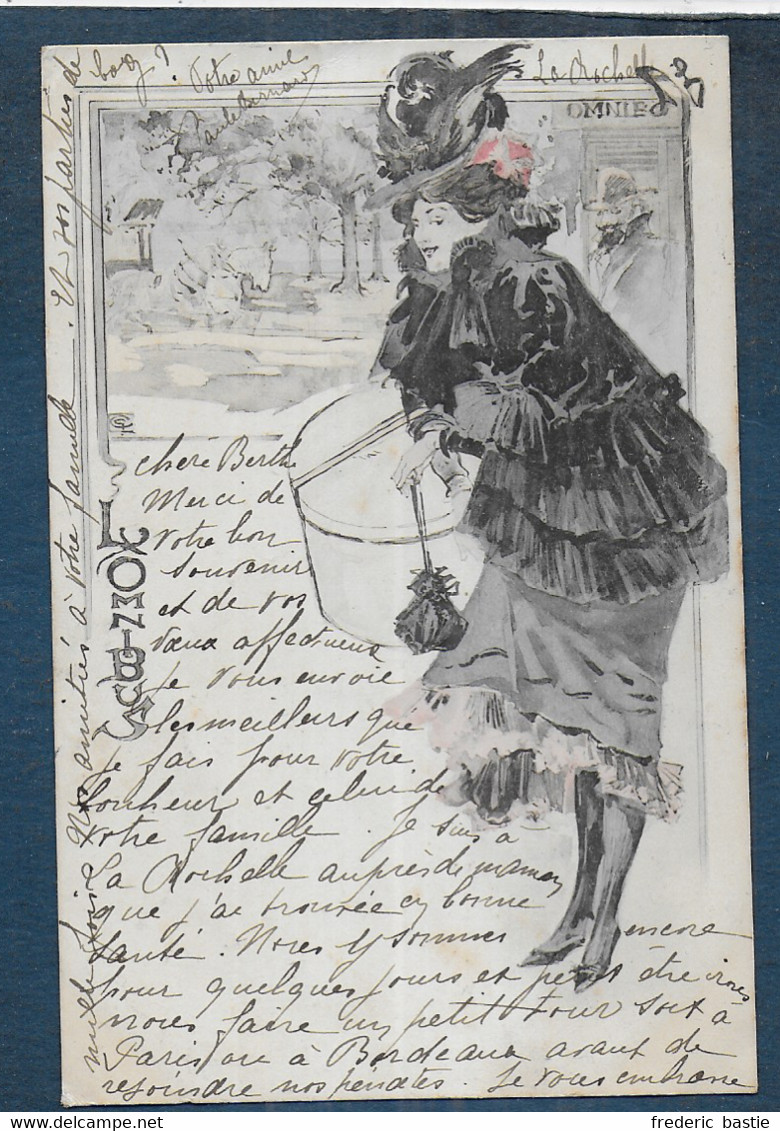 La Rochelle
OMNIBUS
chère Berthe
Merci de
votre bon
souvenir
et de vos
vœux affectueux
je vous envoie
les meilleurs que
je fais pour votre
bonheur et celui de
votre famille. Je suis à
La Rochelle auprès de maman
que j'ai trouvée en bonne
santé. Nous y sommes encore
pour quelques jours et peut être irons
nous faire un petit tour soit à
Paris ou à Bordeaux avant de
rejoindre nos pénates. Je vous embrasse
mille fois. Nos amitiés à votre famille. Et vos parties de
bog?
Votre amie
frederic bastie